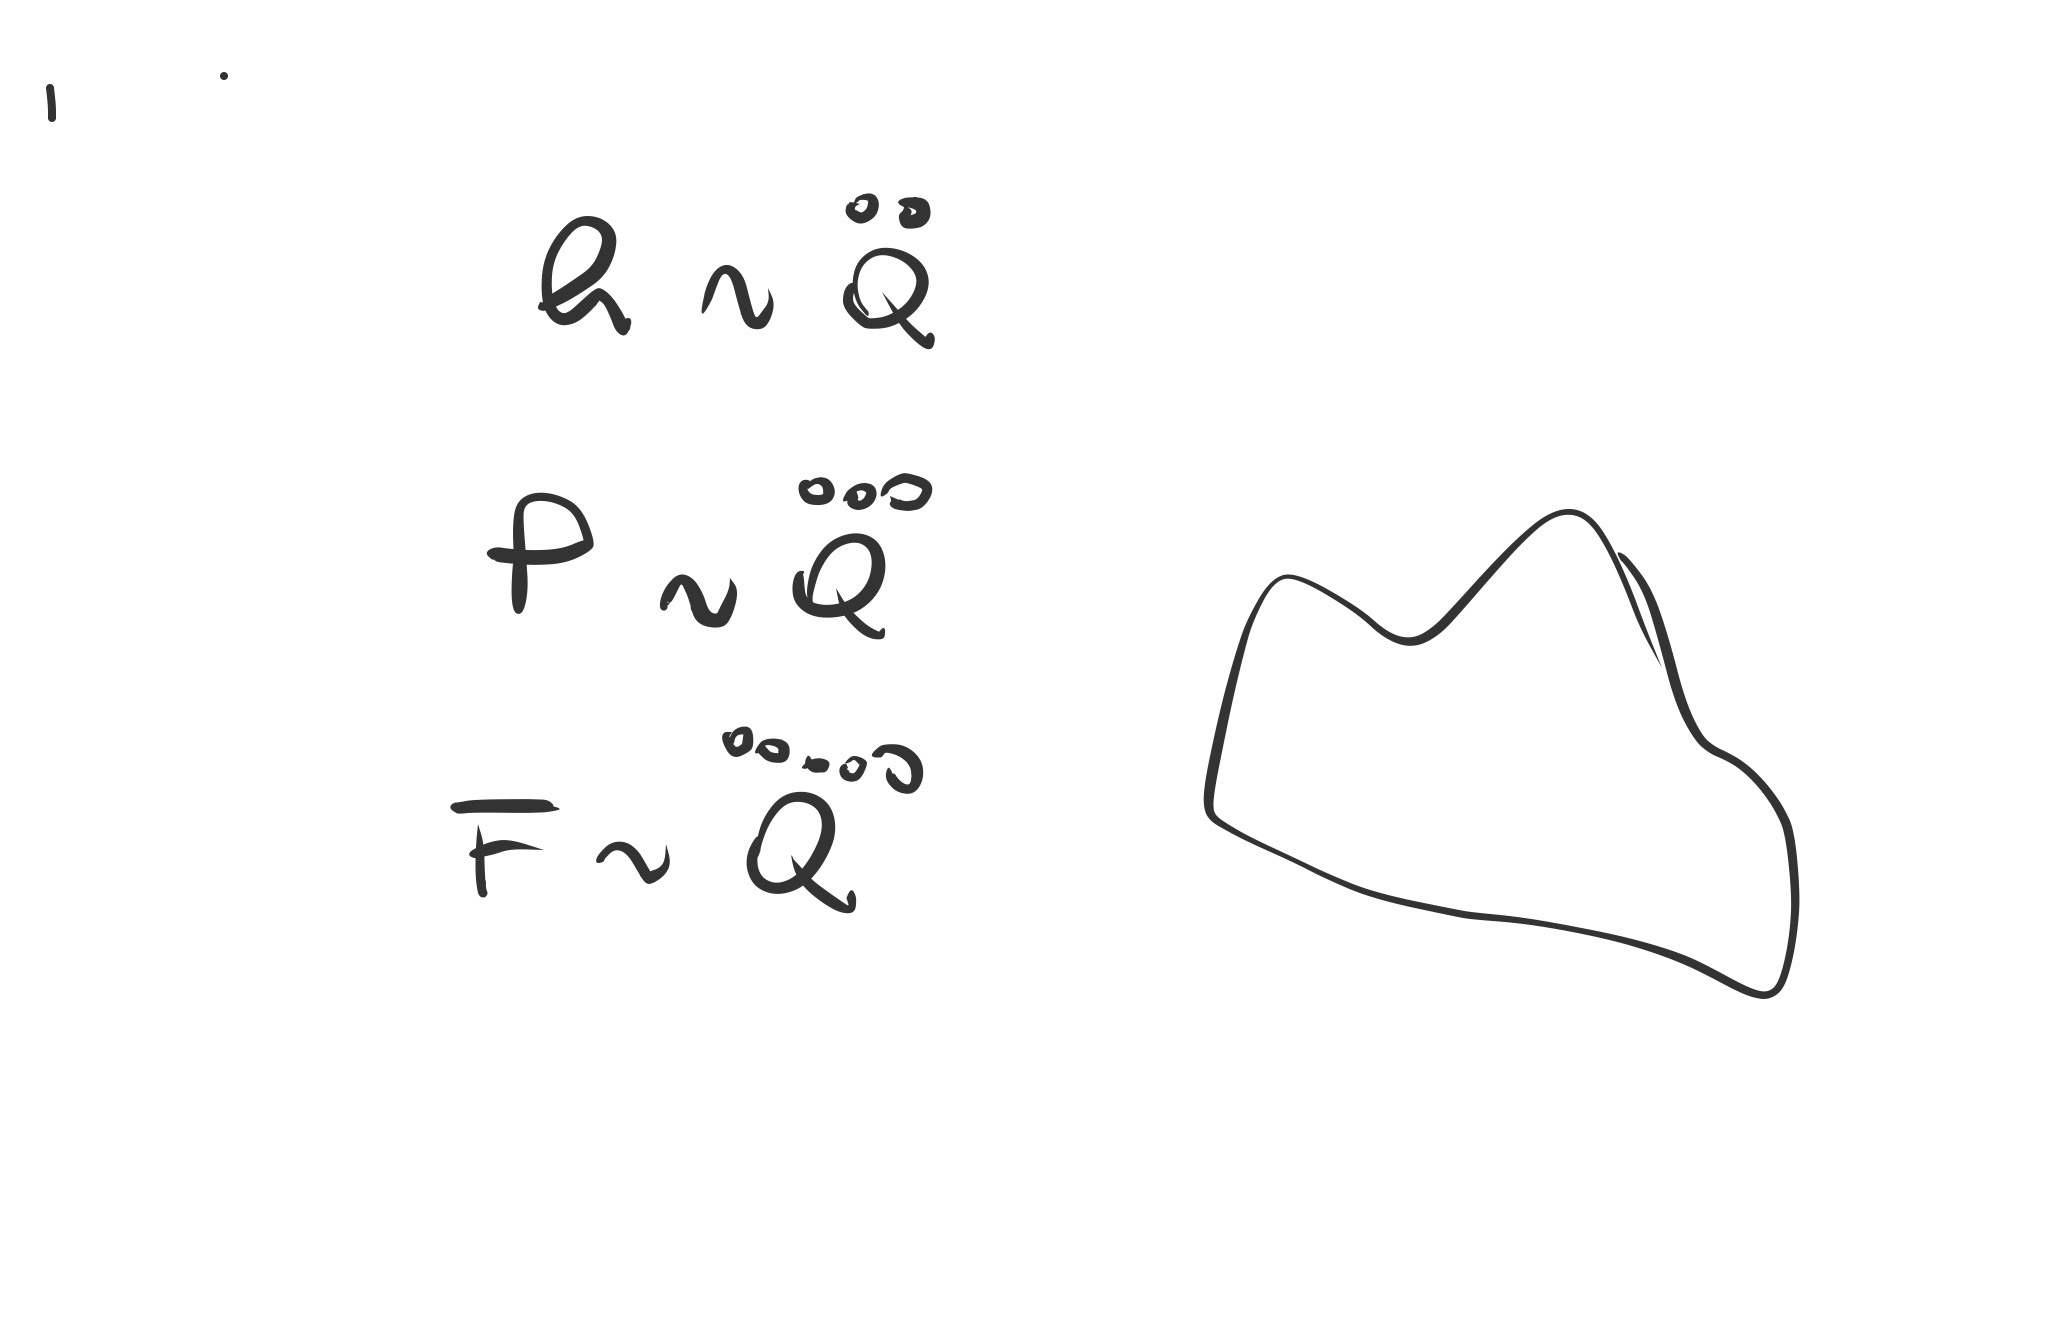 h ~ Q̈
P ~ Q⃛
F ~ Q⃛̈